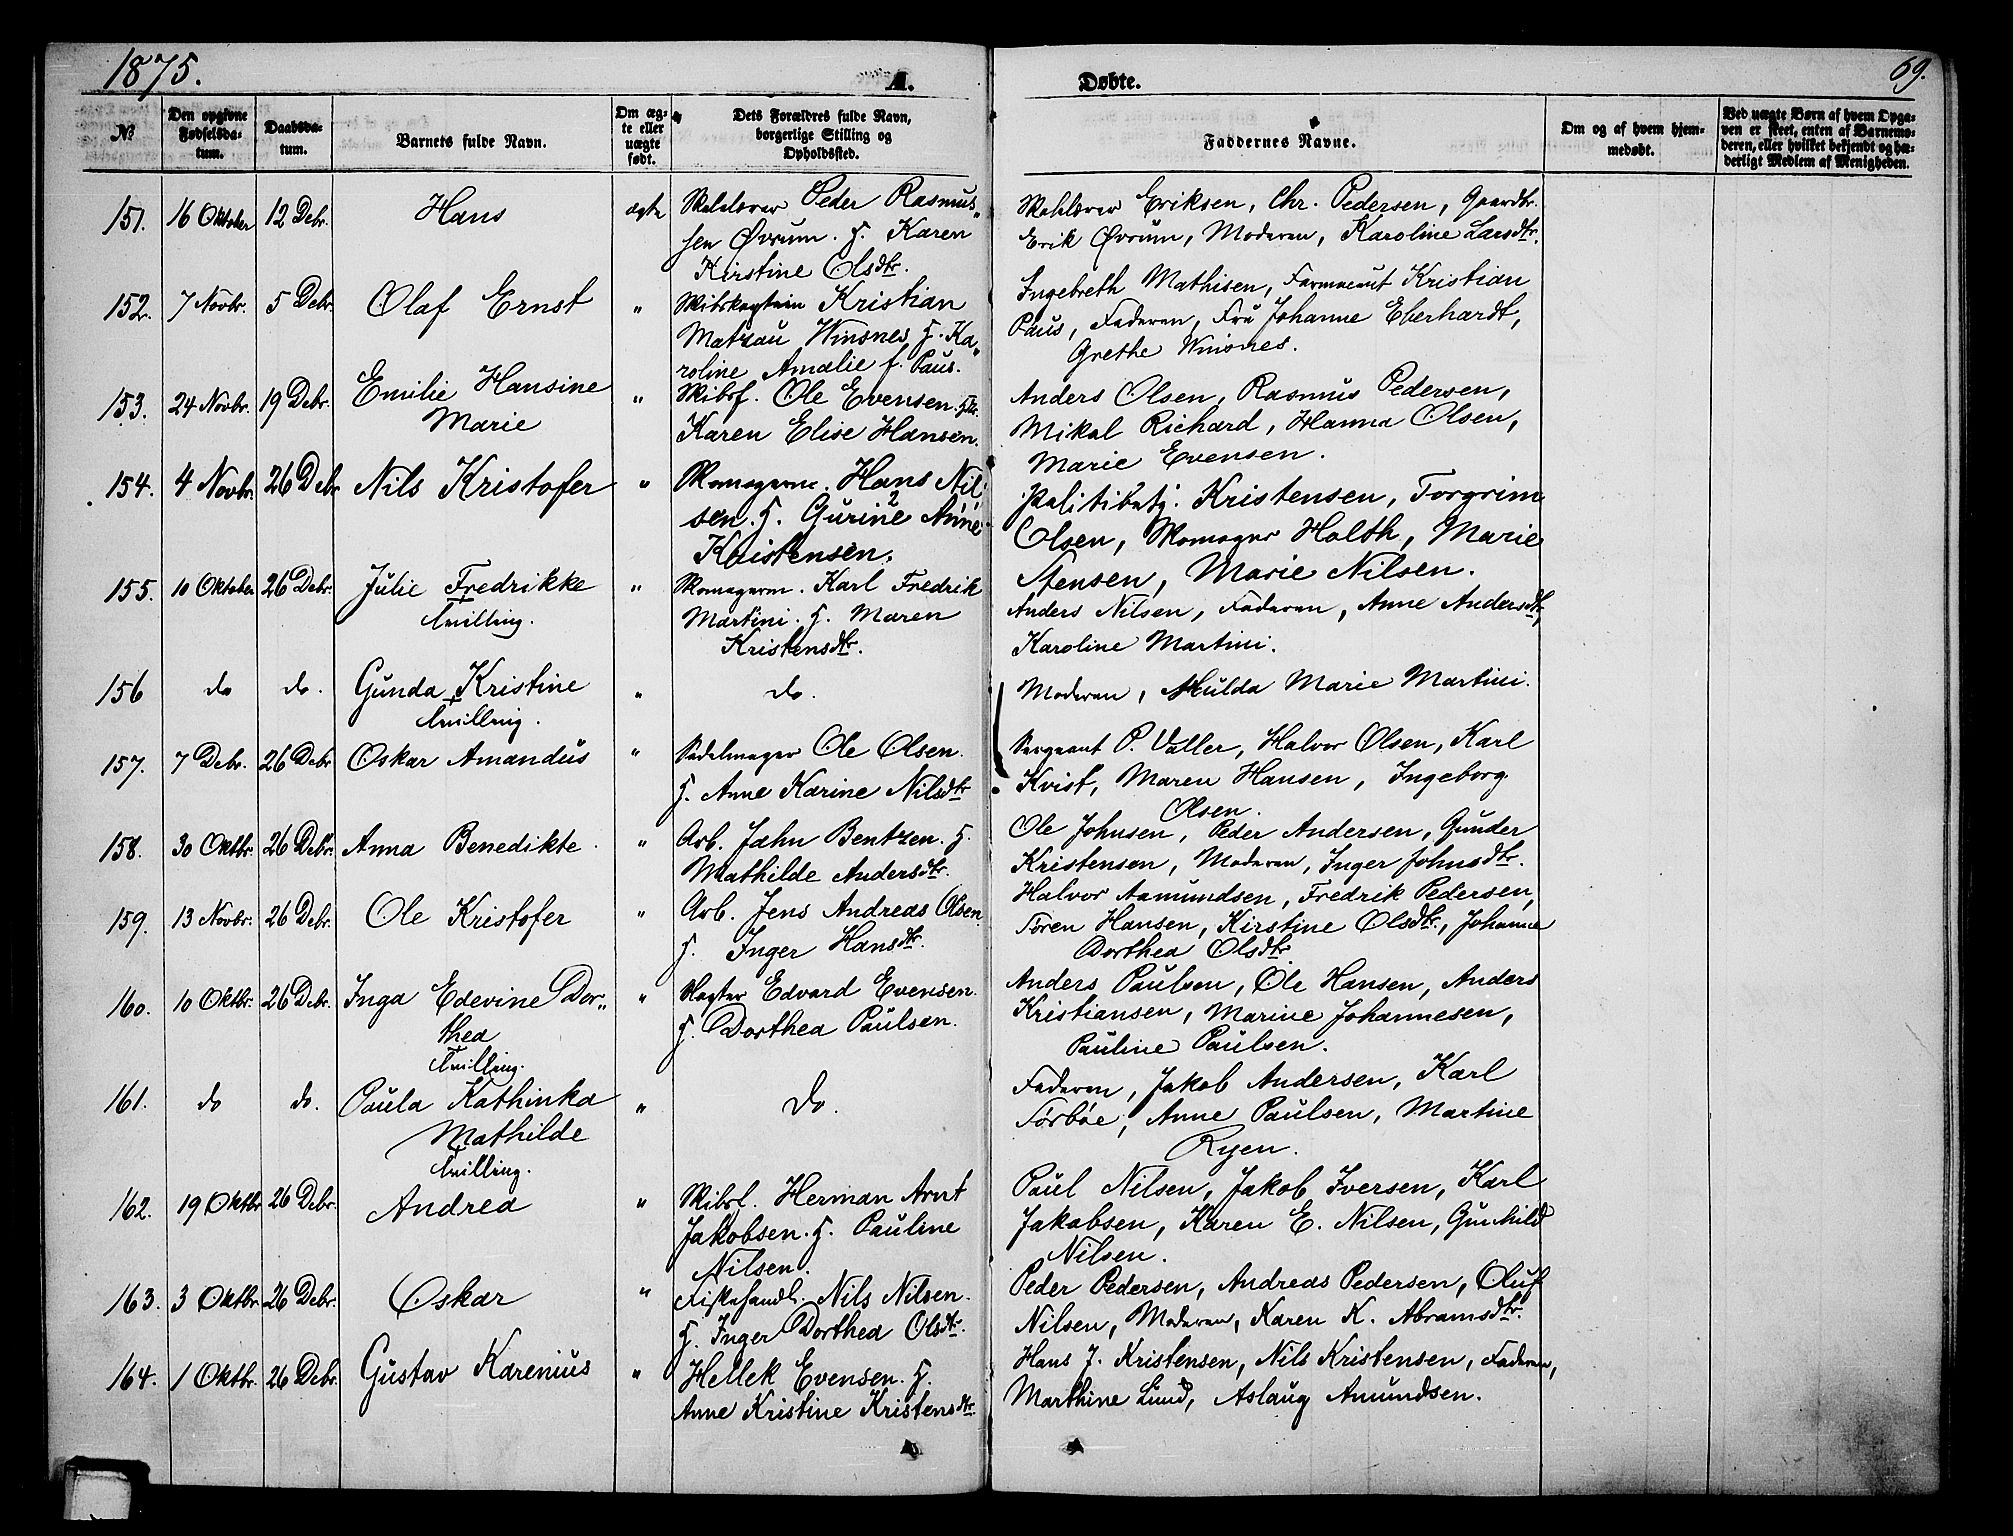 1875.
A.
Døbte.
69.
No
Den opgivne Fødselsda-
tum.
Daabsda-
tum.
Barnets fulde Navn.
Om æg-
te eller
uægte
født.
Dets Forældres fulde Navn,
borgerlige Stilling og
Opholdssted.
Faddernes Navne.
Om og af hvem hjem-
medøbt.
Ved uægte Børn af hvem Opga-
ven er skeet, enten af Barnemo-
deren, eller hvilket bekjendt og hæ-
derligt Medlem af Menigheden.
151. 16 Oktober 12 Debr. Hans ægte Skolelærer Peder Rasmus-
sen Øvrum. H. Karen
Kirstine Olsdtr.
Skolelærer Eriksen, Chr. Pedersen, Gaardbr.
Erik Øvrum, Moderen, Karoline Larsdtr.
152. 7 Novbr. 5 Debr. Olaf Ernst " Skibskaptein Kristian
Matzau Winsnes H. Ka-
roline Amalie f. Paus.
Ingebreth Mathisen, Farmaceut Kristian
Paus, Faderen, Fru Johanne Eberhardt,
Grethe Winsnes.
153. 24 Novbr. 19 Debr. Emilie Hansine
Marie
" Skibsf. Ole Evensen. H.
Karen Elise Hansen.
Anders Olsen, Rasmus Pedersen,
Mikal Richard, Hanna Olsen,
Marie Evensen.
154. 4 Novbr. 26 Debr Nils Kristofer " Skomagerm. Hans Nil-
sen. H. Gurine Anne
Kristensen.
Politibetj. Kristensen, Torgrim
Olsen, Skomager Holth, Marie
Stensen, Marie Nilsen.
155. 10 Oktober 26 Debr. Julie Fredrikke
Tvilling.
" Skomagerm. Karl Fredrik
Martini. H. Maren
Kristensdtr.
Anders Nilsen, Faderen, Anne Andersdtr,
Karoline Martini.
156 do do. Gunda Kristine
Tvilling.
" do.
Moderen, Hulda Marie Martini.
157. 7 Debr. 26 Debr Oskar Amandus " Sadelmager Ole Olsen.
H. Anne Karine Nilsdtr
Sergeant P. Valler, Halvor Olsen, Karl
Kvist, Maren Hansen, Ingeborg
Olsen.
158. 30 Oktbr. 26 Debr. Anna Benedikte. " Arb. John Bentzen. H.
Mathilde Andersdtr.
Ole Johnsen, Peder Andersen, Gunder
Kristensen, Moderen, Inger Johnsdtr.
159. 13 Novbr. 26 Debr. Ole Kristofer " Arb. Jens Andreas Olsen
H. Inger Hansdtr.
Halvor Aamundsen, Fredrik Pedersen,
Søren Hansen, Kirstine Olsdtr., Johanne
Dorthea Olsdtr.
160. 10 Oktbr. 26 Debr. Inga Edevine Dor-
thea
Tvilling.
" Slagter Edvard Evensen.
H. Dorthea Paulsen.
Anders Paulsen, Ole Hansen, Anders
Kristiansen, Marine Johannesen,
Pauline Paulsen.
161. do do. Paula Kathinka
Mathilde
Tvilling.
" do.
Faderen, Jakob Andersen, Karl
Sørbøe, Anne Paulsen, Martine
Ryen.
162. 19 Oktbr 26 Debr. Andrea " Skibsf. Herman Arnt
Jakobsen. H. Pauline
Nilsen.
Paul Nilsen, Jakob Iversen, Karl
Jakobsen, Karen E. Nilsen, Gunhild
Nilsen.
163. 3 Oktbr. 26 Debr. Oskar " Fiskehandl. Nils Nilsen.
H. Inger Dorthea Olsdtr.
Peder Pedersen, Andreas Pedersen, Oluf
Nilsen, Moderen, Karen K. Abramsdtr.
164. 1 Oktbr. 26 Debr. Gustav Karenius " Hellek Evensen. H.
Anne Kristine Kristensdtr.
Hans J. Kristensen, Nils Kristensen, Faderen,
Marthine Lund, Aslaug Amundsen.